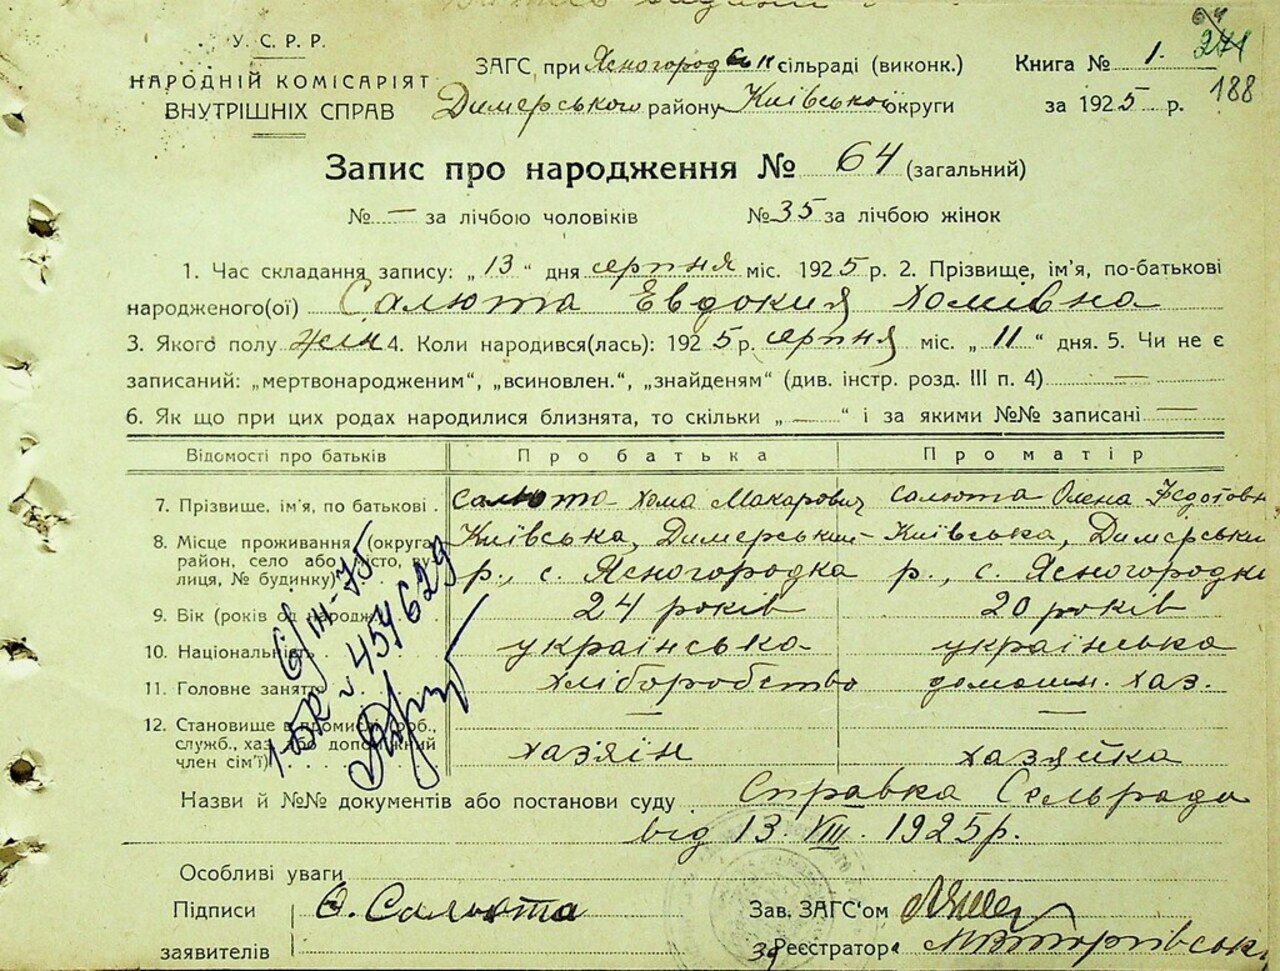 У. С. Р. Р.
НАРОДНІЙ КОМІСАРІЯТ
ВНУТРІШНІХ СПРАВ
ЗАГС при Ясногородськ сільраді (виконк.)
Димерського району Київської округи
Книга № 1.
241
188
за 1925 р.
Запис про народження № 64 (загальний)
№ — за лічбою чоловіків № 35 за лічбою жінок
1. Час складання запису: „13“ дня серпня міс. 1925 р. 2. Прізвище, ім'я, по-батькові
народженого(ої) Салюта Евдокия Хомівна
3. Якого полу жін 4. Коли народився(лась): 1925 р. серпня міс. „11“ дня. 5. Чи не є
записаний: „мертвонародженим“, „всиновлен.“, „знайденям“ (див. інстр. розд. III п. 4) —
6. Як що при цих родах народилися близнята, то скільки „—“ і за якими №№ записані —
Відомості про батьків Про батька Про матір
7. Прізвище, ім'я, по батькові . Салюта Хома Макарович Салюта Олена Федотовн
8. Місце проживання (округа, Київська, Димерський Київська, Димерськи
район, село або місто, ву-
лиця, № будинку) р., с. Ясногородка р., с. Ясногородк
9. Вік (років од народж.) 24 років 20 років
10. Національність українська українська
11. Головне заняття хліборобство домашн. хаз.
12. Становище в промислі (роб., — —
служб., хаз. або допоміжний
член сім'ї) хазяїн хазяйка
1-БК № 457629
6/III-75
Назви й №№ документів або постанови суду Справка Сельрада
від 13. VIII. 1925 р.
Особливі уваги
Підписи О. Салюта
заявителів
Зав. ЗАГС'ом
За Реєстратор